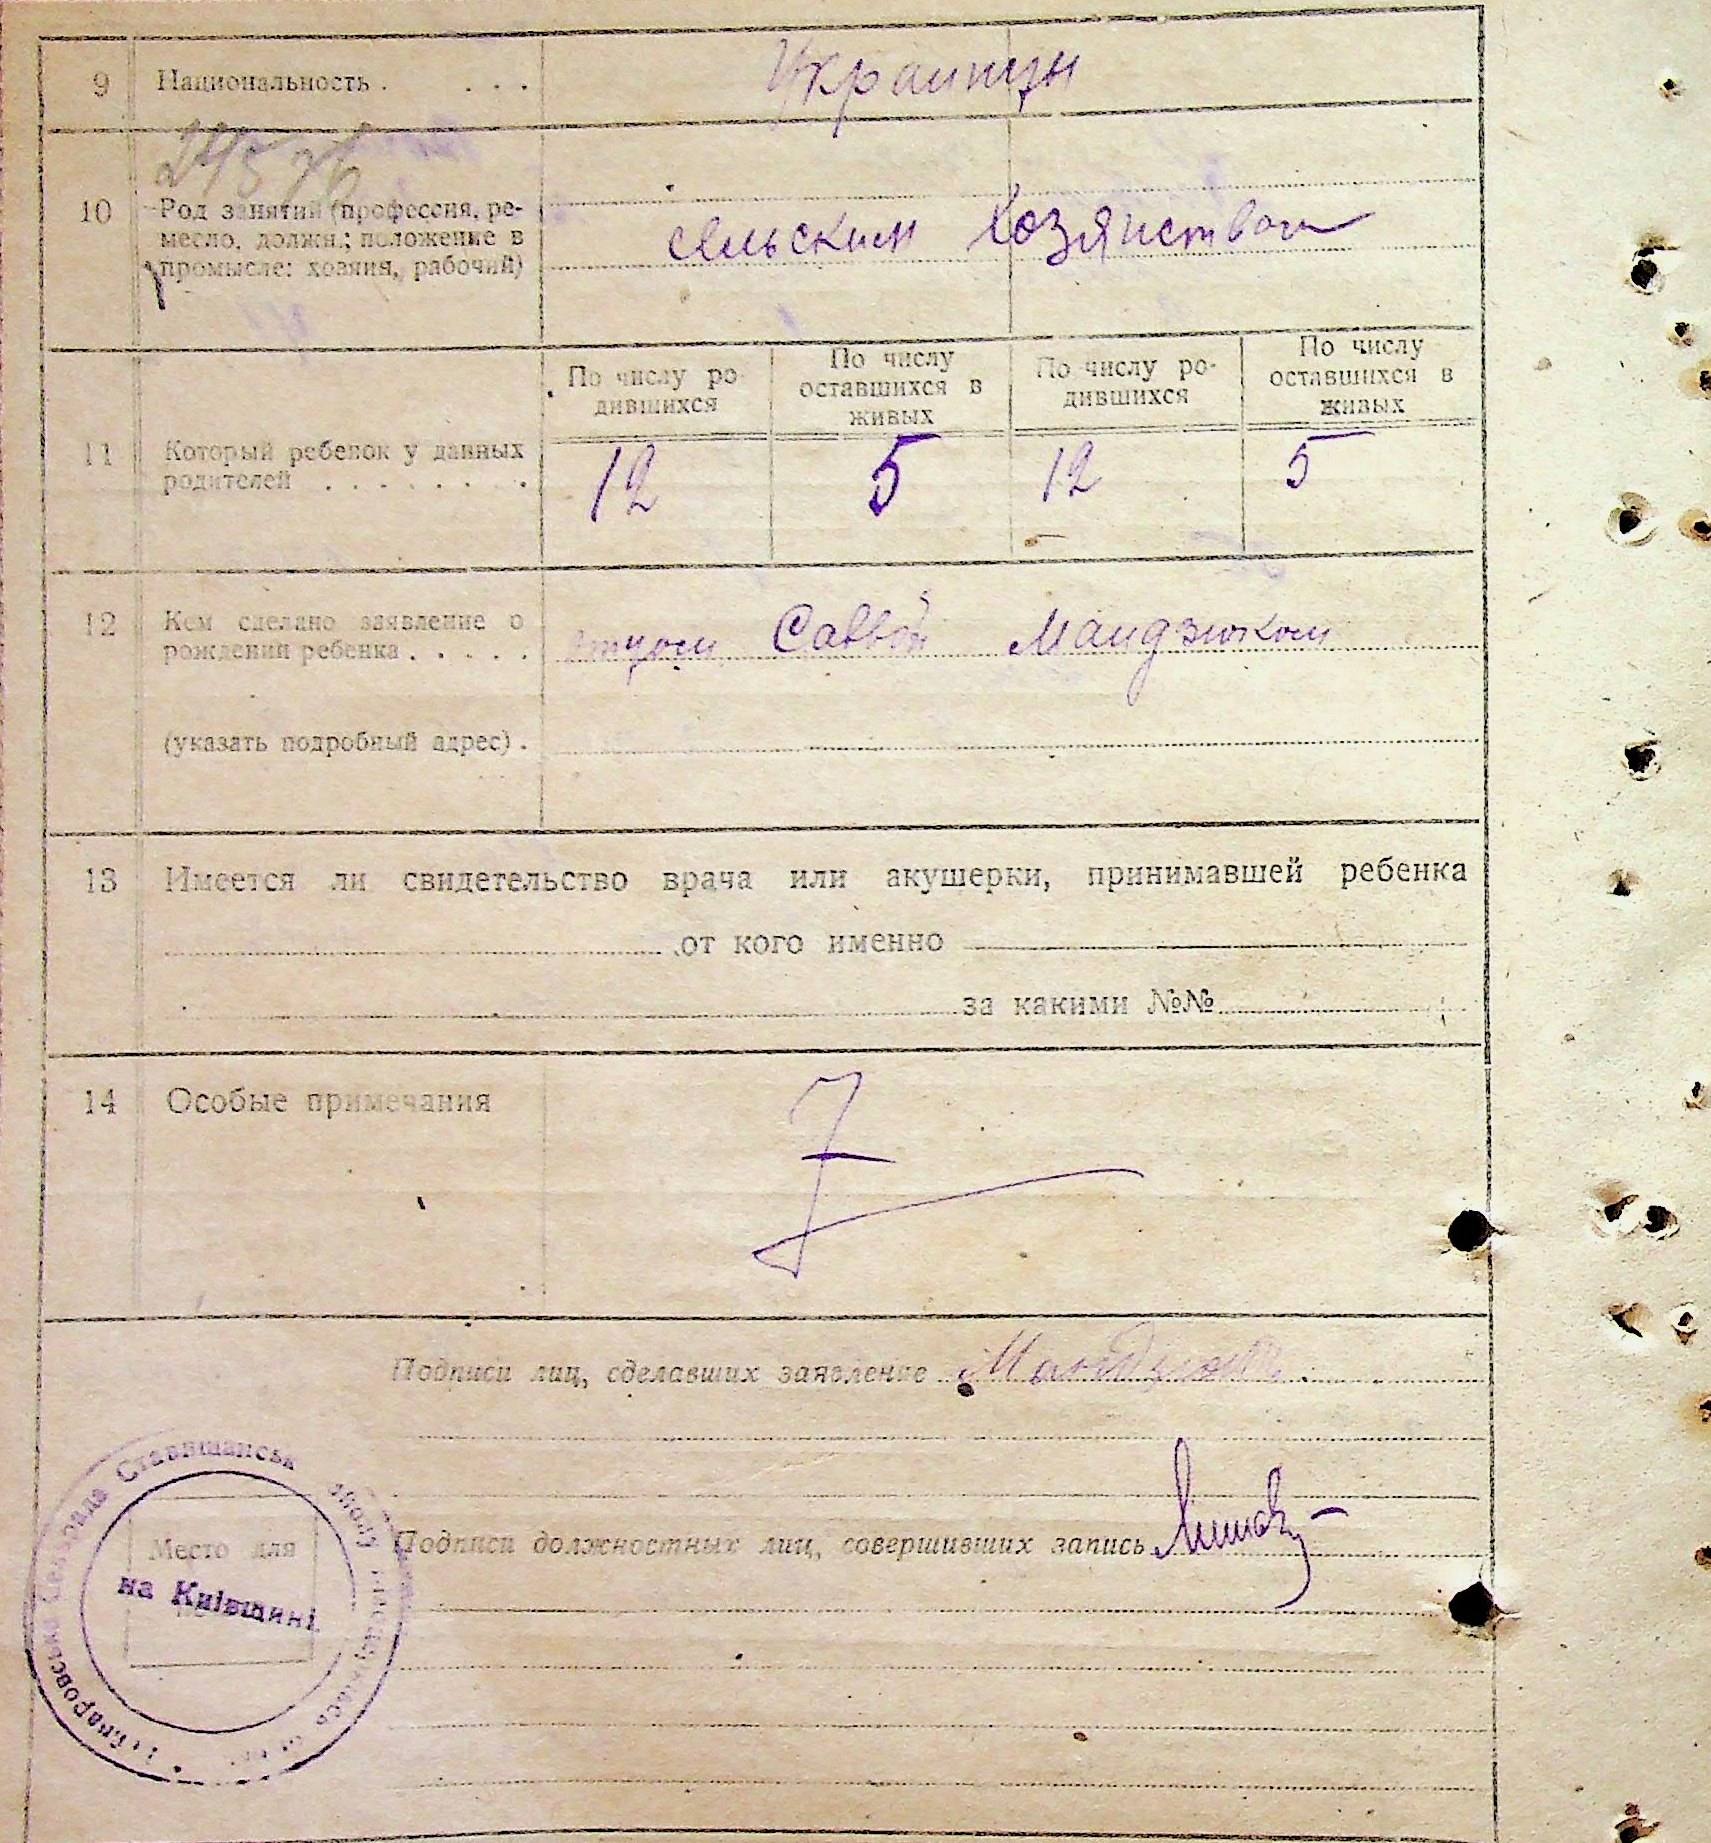 9 Национальность . . . . Украинцы
10 Род занятий (профессия, ре-
месло, должн.; положение в
промысле: хозяин, рабочий)
сельским хозяйством
По числу ро-
дившихся
По числу
оставшихся в
живых
По числу ро-
дившихся
По числу
оставшихся в
живых
11 Который ребенок у данных
родителей . . . . . . . .
12 5 12 5
12 Кем сделано заявление о
рождении ребенка . . . . .
отцом Саввой Мандзюком
(указать подробный адрес) .
13 Имеется ли свидетельство врача или акушерки, принимавшей ребенка
от кого именно
за какими №№
14 Особые примечания
Подписи лиц, сделавших заявление Мандзюк
Подписи должностных лиц, совершивших запись
Сельрада Ставищанськ
Место для
на Київщині